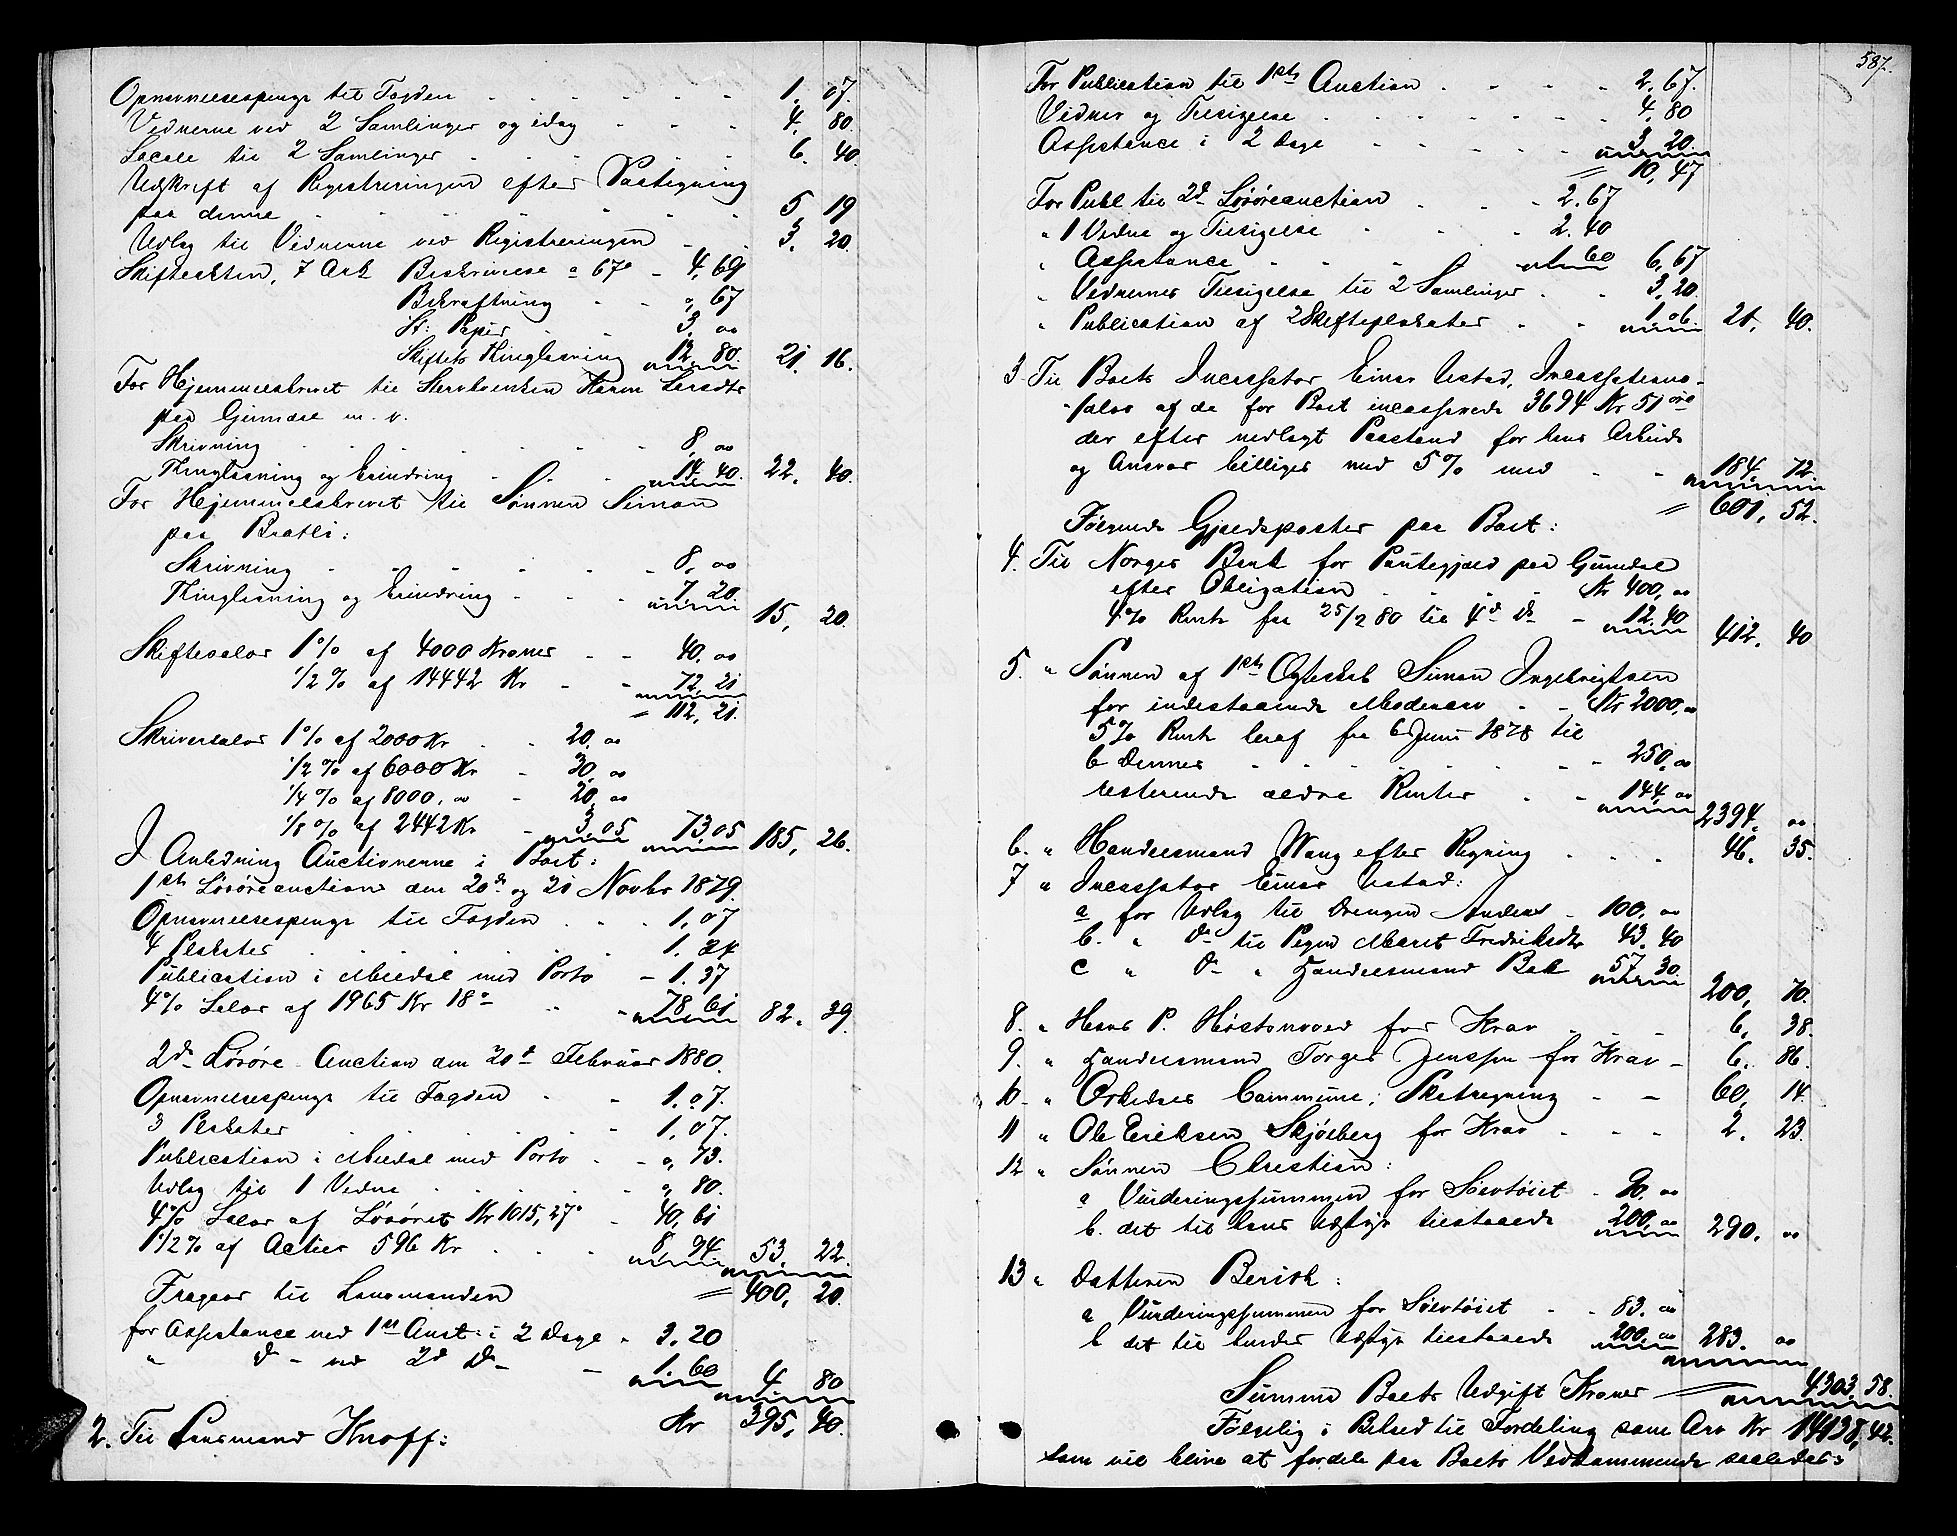 Opnævnelsespenge til Fogden 1. 07.
Vidnerne ved 2 Samlinger og idag 4. 80.
Locale til 2 Samlinger 6. 40
Udskrift af Registreringen efter Paategning
paa denne 5 19
Udlæg til Vidnerne ved Registreringen 3. 20.
Skifteakten, 7 Ark Beskrivelse a 67ø 4,69
Bekræftning 0,67
St: Papir 3,00
Skiftets Thinglæsning 12,80. 21. 16.
For Hjemmelsbrevet til Stervboenken Karen Larsdtr
paa Grimdal m. v.
Skrivning 8,00
Thinglæsning og Erindring 14.40. 22. 40.
For Hjemmelsbrevet til Sønnen Simon
paa Bratli:
Skrivning 8,00
Thinglæsning og Erindring 7 20. 15, 20.
Skiftesalær 1% af 4000 Kroner 40.00
1/2% af 14442 Kr 72,21
= 112,21.
Skriversalær 1% af 2000 Kr 20.00
1/2% af 6000 Kr 30,00
1/4% af 8000,00 20,00
1/8% af 2442 Kr 3 05 73,05 185, 26.
I Anledning Auctionerne i Boet:
1ste Løsøreauction den 20de og 21 Novbr 1879.
Opnævnelsespenge til Fogden 1,07
4 Plakater 1.24
Publication i Meldal med Porto 1.37
4% Salær af 1965 Kr 18ø 78 61 82. 29.
2den Løsøre Auction den 20de Februar 1880.
Opnævnelsespenge til Fogden 1.07.
3 Plakater 1,07.
Publication i Meldal med Porto 0,73.
Udlæg til 1 Vidne 0,80.
4% Salær af Løsøret Kr 1015,27ø 40,61
1 1/2% af Actier 596 Kr 8 94 53. 22.
Fragaar til Lensmanden = 400, 20.
for Assistance ved 1ste Auct: i 2 Dage 3.20
" Do ved 2d Do 1.60 4 80
2. Til Lensmand Knoff: Kr 395,40.
587.
For Publication til 1ste Auction 2,67.
Vidner og Tilsigelse 4,80
Assistance i 2 Dage 3,20
= 10,47
For Publ til 2d Løsøreauction 2.67
" 1 Vidne og Tilsigelse 2.40
" Assistance 1 60 6,67
" Vidnernes Tilsigelse til 2 Samlinger 3,20.
" Publication af 2 Skifteplakater 1 06. 21, 40.
3 Til Boets Incassator Einar Ustad, Incassations-
salær af de for Boet incasserede 3694 Kr 51 øre
der efter nedlagt Paastand for hans Arbeide
og Ansvar billiges med 5% med 184,72
= 601,52.
Følgende Gjældsposter paa Boet:
4. Til Norges Bank for Pantegjæld paa Grimdal
efter Obligation Kr 400,00
4% Rente fra 25/2 80 til 4d Do 12.40 412. 40
5. " Sønnen af 1ste Ægteskab Simon Ingebrigtsen
for indestaaende Mødrenarv Kr 2000,00
5% Rente heraf fra 6 Juni 1878 til
6 Dennes 250,00
resterende ældre Renter 144,00 2394. 00
6. " Handelsmand Wang efter Regning 46. 35.
7 " Incassator Einar Ustad:
a for Udlæg til Drengen Anders 100,00
b. " Do til Pigen Marit Fredriksdtr 43.40
c " Do " Handelsmand Bak 57 30. 200, 70.
8. " Hans P. Høstonvold for Krav 6, 38.
9. " Handelsmand Torger Jenssen for Krav 6. 86.
10 " Orkedals Commune, Skatregning 60, 14.
11 " Ole Eriksen Skjølberg for Krav 2. 23.
12 " Sønnen Christian:
a Vurderingssummen for Sølvtøiet 90.00
b. det til hans Udstyr tilstaaede 200,00 290. 00
13 " Datteren Berith:
a Vurderingssummen for Sølvtøiet 83.00
b det til hendes Udstyr tilstaaede 200,00 283. 00
Summa Boets Udgift Kroner = 4303,58.
Følgelig i Behold til Fordeling som Arv Kr 14138,42.
som vil blive at fordele paa Boets Vedkommende saaledes: